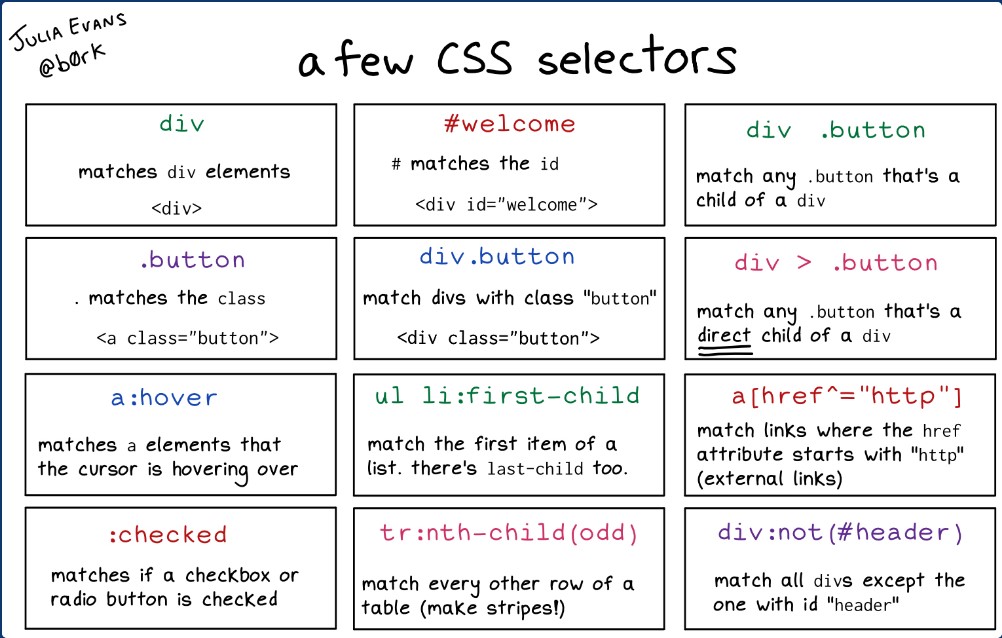 JULIA EVANS
@b0rk
a few CSS selectors
div
matches div elements
<div>
#welcome
# matches the id
<div id="welcome">
div .button
match any .button that's a
child of a div
.button
. matches the class
<a class="button">
div.button
match divs with class "button"
<div class="button">
div > .button
match any .button that's a
direct child of a div
a:hover
matches a elements that
the cursor is hovering over
ul li:first-child
match the first item of a
list. there's last-child too.
a[href^="http"]
match links where the href
attribute starts with "http"
(external links)
:checked
matches if a checkbox or
radio button is checked
tr:nth-child(odd)
match every other row of a
table (make stripes!)
div:not(#header)
match all divs except the
one with id "header"